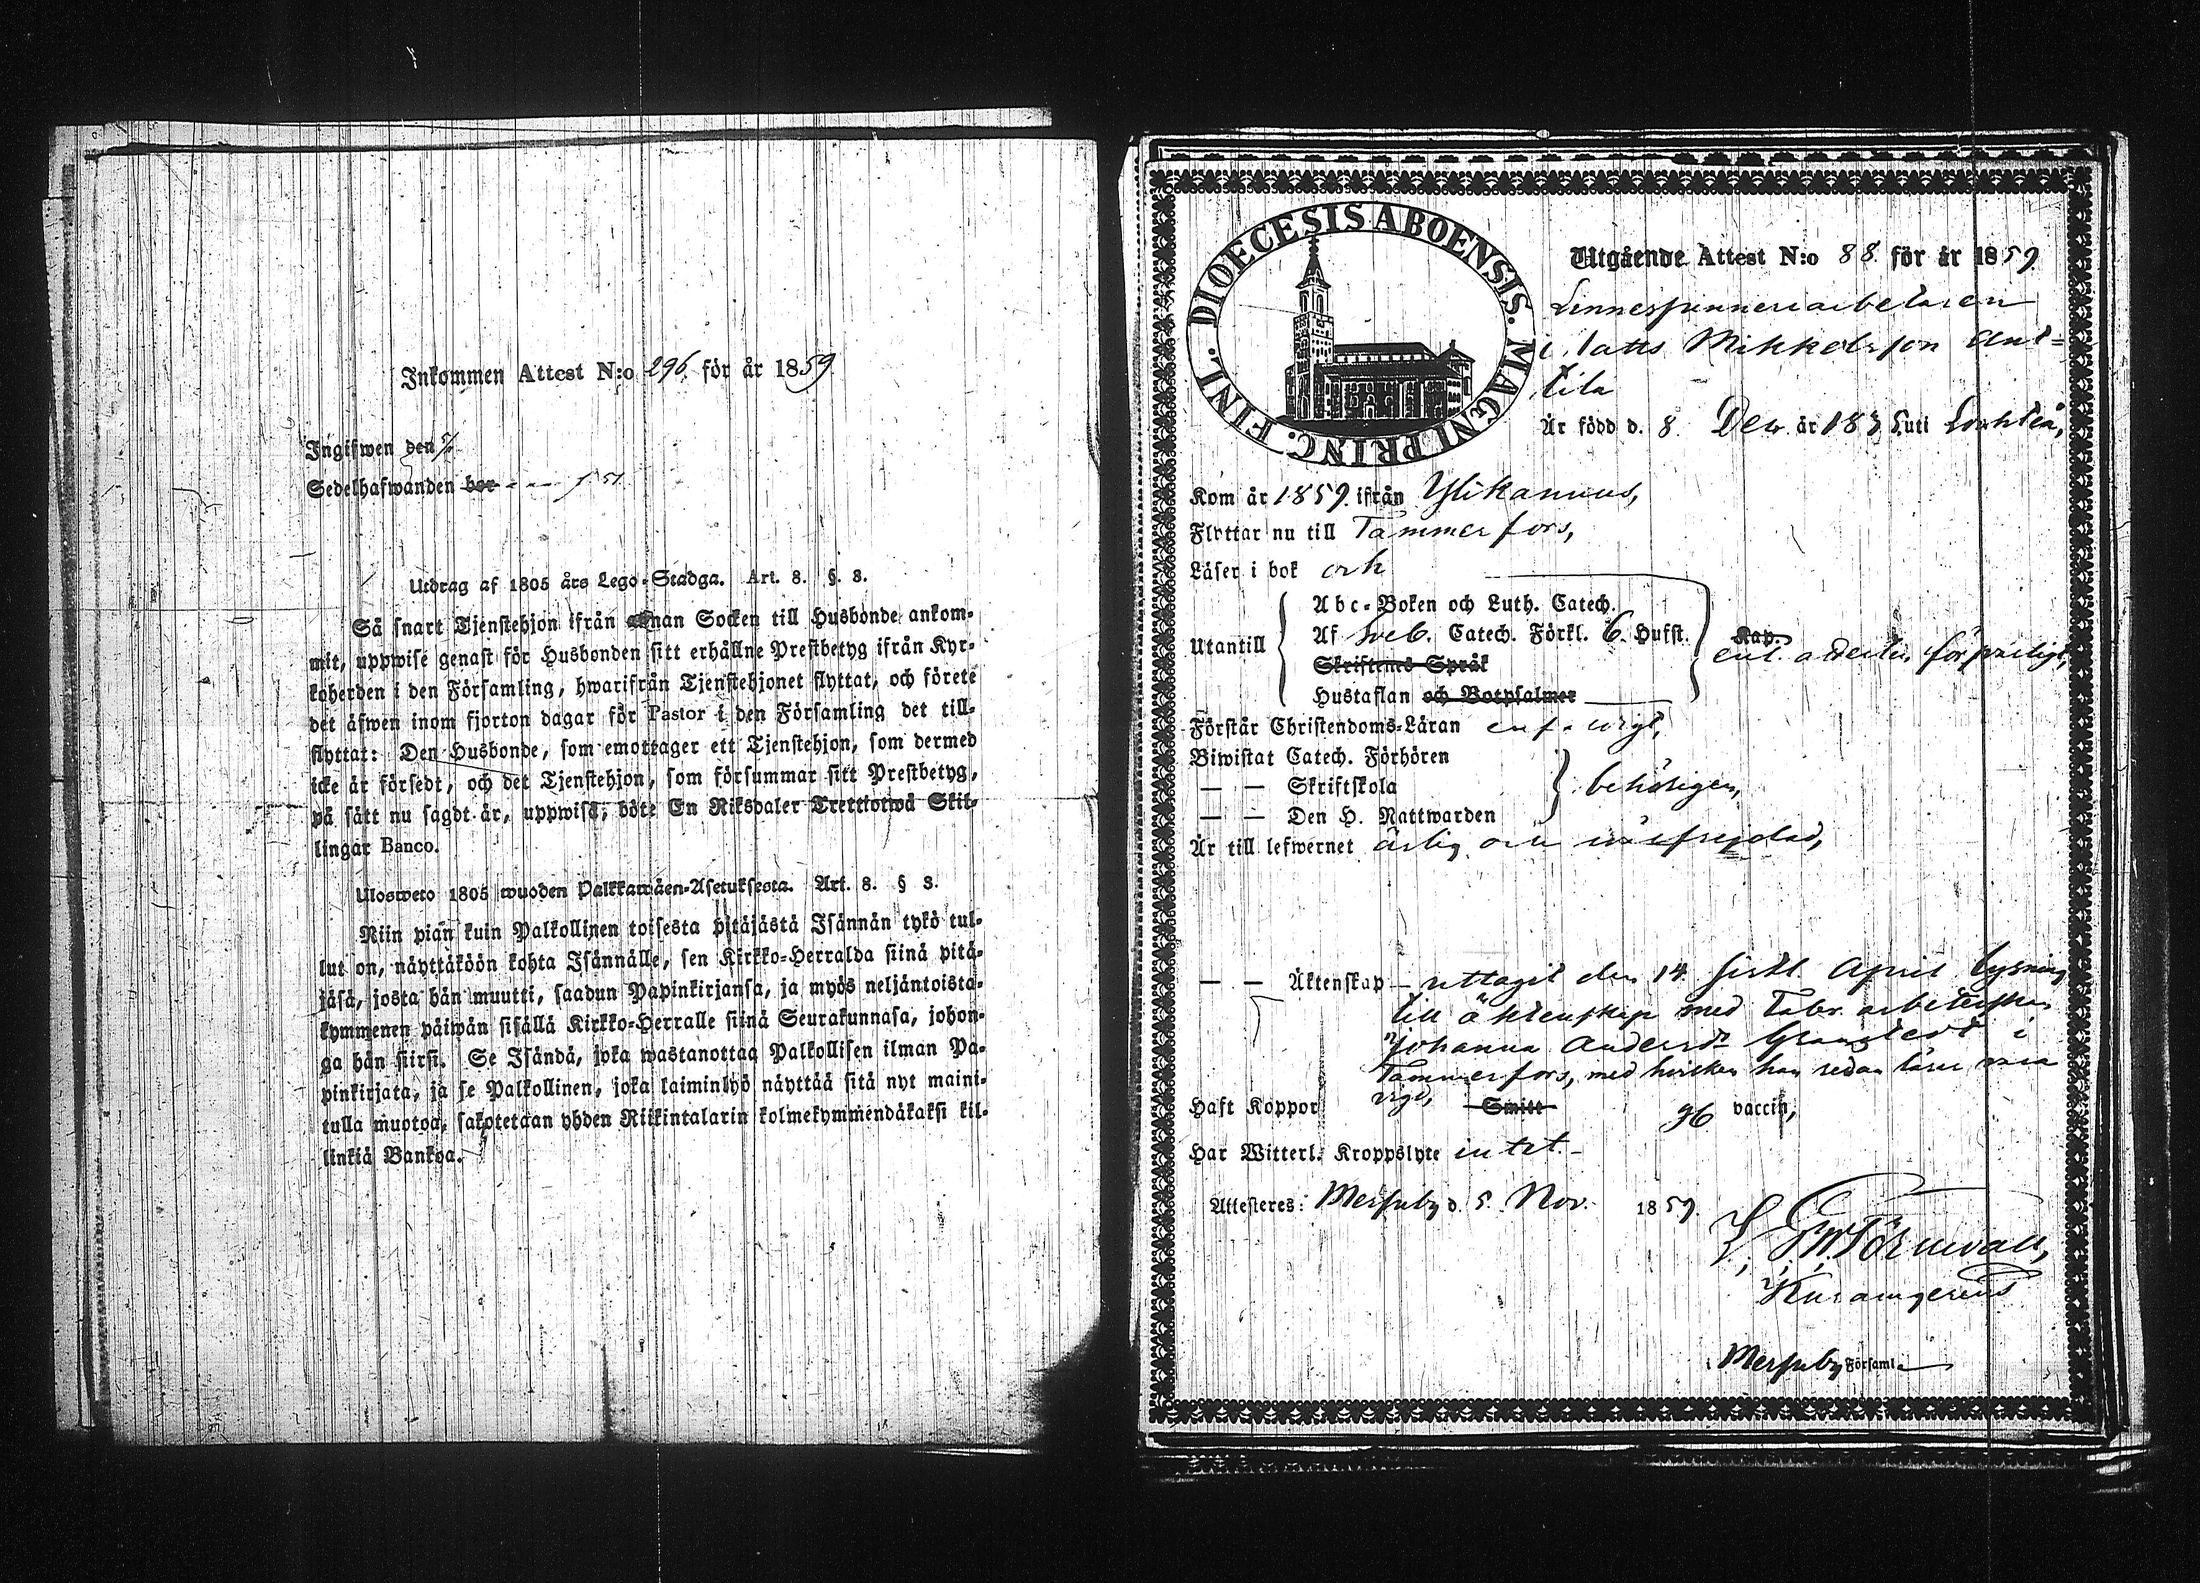 Inkommen Attest N:o 296 för år 1859
Ingifwen den
Sedelhafwanden bor
Utdrag af 1805 års Lego-Stadga. Art. 8. §. 3.
Så snart Tjenstehjon ifrån annan Socken till Husbonde ankom-
mit, uppwise genast för Husbonden sitt erhållne Prestbetyg ifrån Kyr-
koherden i den Församling, hwarifrån Tjenstehjonet flyttat, och förete
det äfwen inom fjorton dagar för Pastor i den Församling det till-
flyttat: Den Husbonde, som emottager ett Tjenstehjon, som dermed
icke är försedt, och det Tjenstehjon, som försummar sitt Prestbetyg,
på sätt nu sagdt är, uppwisa; böte En Riksdaler Trettiotwå Skil-
lingar Banco.
Ulosweto 1805 wuoden Palkkawäen-Asetuksesta. Art. 8. § 3.
Niin pian kuin Palkollinen toisesta pitäjästä Isännän tykö tul-
lut on, näyttäköön kohta Isännälle, sen Kirkko-Herralda siinä pitä-
jäsä, josta hän muutti, saadun Papinkirjansa, ja myös neljäntoista-
kymmenen päiwän sisällä Kirkko-Herralle siinä Seurakunnasa, johon-
ga hän siirsi. Se Isändä, joka wastanottaa Palkollisen ilman Pa-
pinkirjata, ja se Palkollinen, joka laiminlyö näyttää sitä nyt maini-
tulla muotoa, sakotetaan yhden Riikintalarin kolmekymmendäkaksi kil-
linkiä Bankoa.
DIOECESIS ABOENSIS. MAGNI PRINC. FINL.
Utgående Attest N:o 88 för år 1859
Linnespinneriarbetaren
Matts Mikkelsson Ant-
tila
Är född d. 8 Dec. år 183 uti Lochteå,
Kom år 1859 ifrån Ylikannus,
Flyttar nu till Tammerfors,
Läser i bok och
Utantill
Abc-Boken och Luth. Catech.
Af Sveb. Catech. Förkl. 6. Hufst.
Skriftens Språk
Hustaflan och Botpsalmer
Kap.
enl. attesten försvarligt,
Förstår Christendoms-Läran
Biwistat Catech. Förhören
— — Skriftskola
— — Den H. Nattwarden
behörigen,
Är till lefwernet ärlig och wälfrejdad,
— — Äktenskap — uttagit den 14 sistl. April lysning
till äktenskap med Fabr. arbeterskan
Johanna Andersdr Granstedt i
Tammerfors, med hvilken han sedan lärer vara
vigd,
Haft Koppor Smitt vaccin,
Har Witterl. Kroppslyte intet.
Attesteres: Messuby d. 5 Nov. 1859.
Törnwall,
i Messuby Församl.